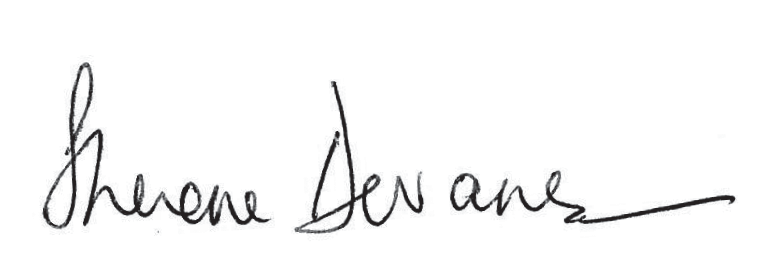 Sherene Devanes